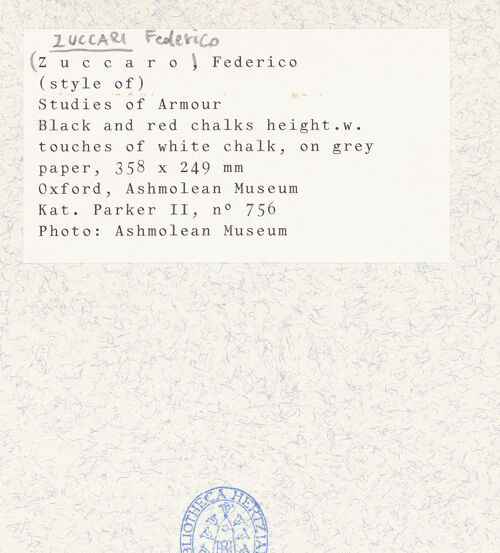 ZUCCARI Federico
(Z u c c a r o), Federico
(style of)
Studies of Armour
Black and red chalks height.w.
touches of white chalk, on grey
paper, 358 x 249 mm
Oxford, Ashmolean Museum
Kat. Parker II, nº 756
Photo: Ashmolean Museum
BIBLIOTHECA HERTZIA